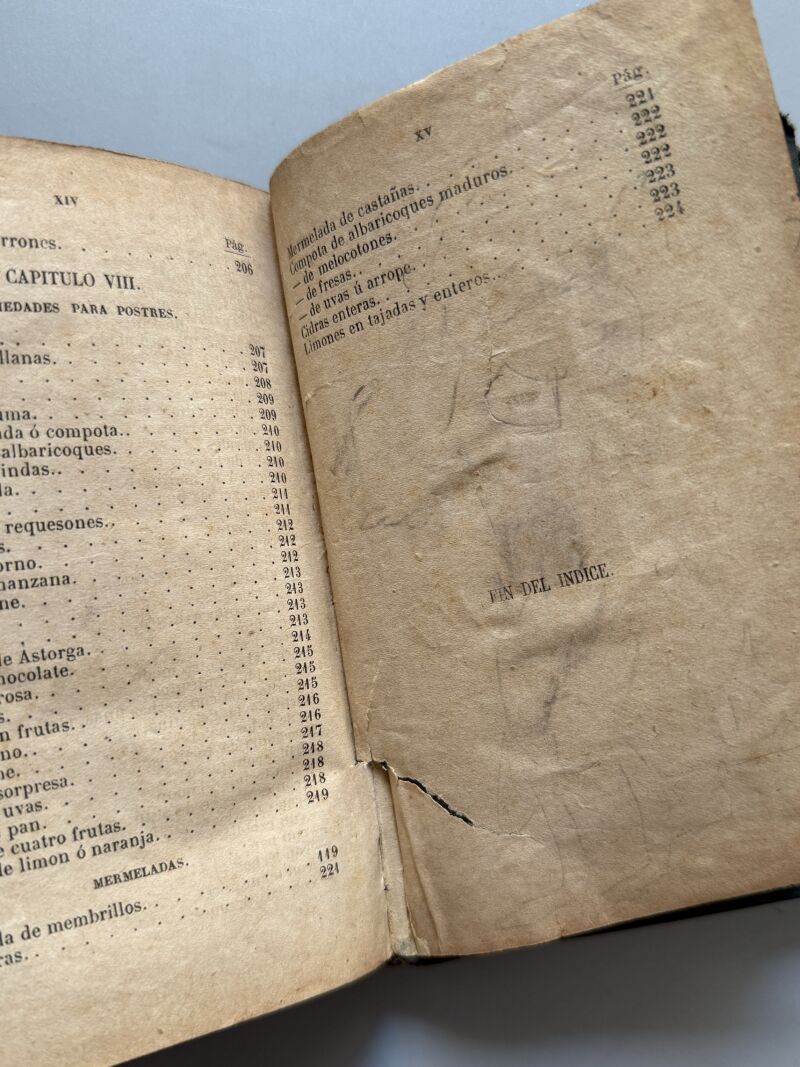 XIV
Pág.
rrones. 206
CAPITULO VIII.
IEDADES PARA POSTRES.
207
llanas. 207
208
209
uma. 209
da ó compota.. 210
albaricoques. 210
indas.. 210
la. 210
211
requesones.. 211
s. 212
orno. 212
manzana. 212
ne. 213
213
213
213
de Astorga. 214
hocolate. 215
rosa. 215
s. 215
n frutas. 216
no.. 216
ne. 217
sorpresa. 218
uvas. 218
pan. 218
e cuatro frutas. 219
de limon ó naranja.
MERMELADAS.
da de membrillos. 119
ras. 221
XV
Pág.
Mermelada de castañas. 221
Compota de albaricoques maduros. 222
— de melocotones. 222
— de fresas.. 222
— de uvas ú arrope. 223
Cidras enteras. 223
Limones en tajadas y enteros.. 224
FIN DEL INDICE.